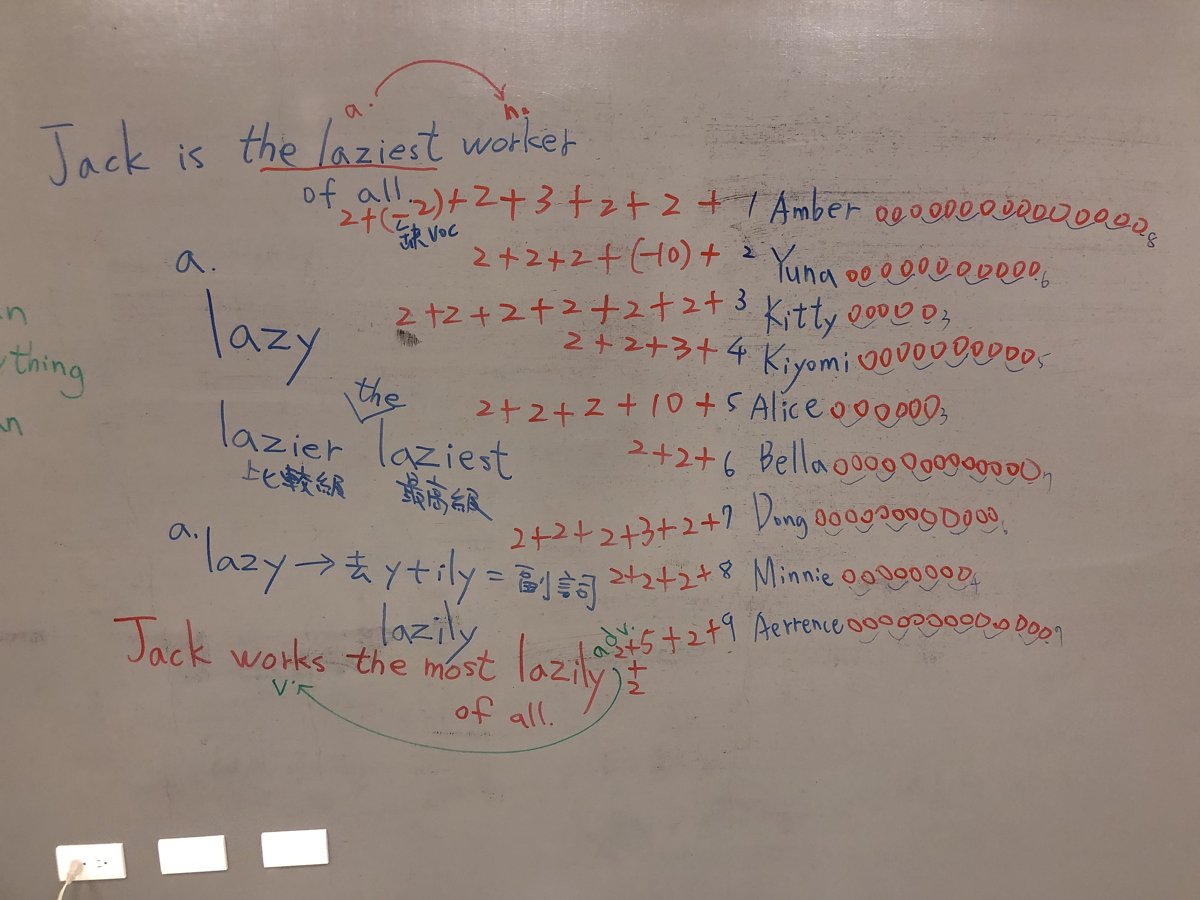 a. n.
Jack is the laziest worker
of all.
2+(-2)+2+3+2+2+ 1 Amber 8
缺voc
2+2+2+(-10)+ 2 Yuna 6
a.
lazy
2+2+2+2+2+2+ 3 Kitty 3
2+2+3+ 4 Kiyomi 5
the
lazier laziest
比較級 最高級
2+2+2+10+ 5 Alice 3
2+2+ 6 Bella 7
2+2+2+3+2+ 7 Dong
a. lazy → 去y+ily = 副詞
2+2+2+ 8 Minnie 4
lazily
2+5+2+ 9 Aerrence 7
+
2
adv.
Jack works the most lazily
v.
of all.
n
thing
an